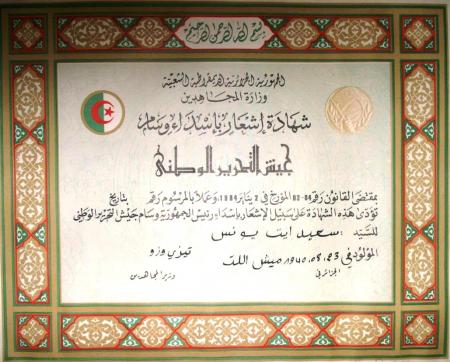 بسم الله الرحمن الرحيم
الجمهورية الجزائرية الديمقراطية الشعبية
وزارة المجاهدين
شهادة إشعار بإسداء وسام
جيش التحرير الوطني
بمقتضى القانون رقم 84-02 المؤرخ في 2 يناير 1984، وعملا بالمرسوم رقم بتاريخ
تؤدى هذه الشهادة على سبيل الإشعار بإسداء رئيس الجمهورية وسام جيش التحرير الوطني
للسيد: سعيد ايت يونس
المولود في 23 .05. تيزي وزو
الجزائر في وزير المجاهدين